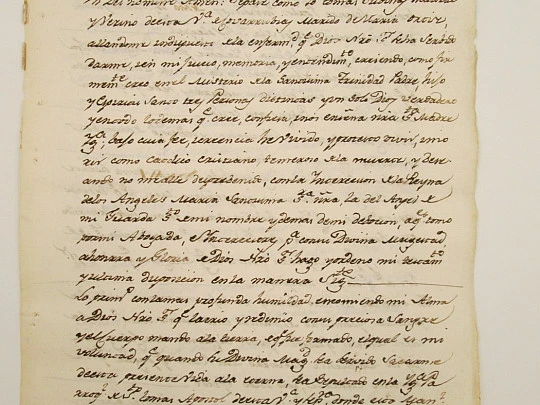 En el nombre Amen: Sepase como yo tomas
y Vecino de esta V.ª de Covarrubias, Marido de Maria
allandome indispuesto de la enfermd. q̃ Dios Nro S.r ha sido Servido
darme, i en mi Juicio, memoria, y entendim.to, creiendo, como fir
mem.te creo, en el Misterio de la Santisima Trinidad Padre, hijo
y Espiritu Santo tres Personas distintas y un solo Dios Verdadero
y en todo lo demas q.e cree, confiesa, i nos enseña nra S.ta Madre
Yg.ª, bajo cuia fee, i creencia he Vivido, y protesto vivir, i mo
rir como catolico cristiano, temeroso de la muerte, y dese
ando no me alle desprebenido, con la Intercesion de la Reyna
de los Angeles Maria Santisima S.ra nra, la del Angel de
mi Guarda S.to de mi nombre y demas de mi debocion, a q.e tomo
por mi Abogada, e Intercesora, p.ª con su Divina Magestad,
a honrra y Gloria de Dios Nro S.r hago y ordeno mi testam.to
y ultima disposicion en la manera Sig.te
Lo prim.o con la mas profunda humildad, encomiendo mi Alma
a Dios Nro S.r q.e la crio, y redimio con su preciosa Sangre
y el cuerpo mando a la tierra, de q.e fue formado, el qual es mi
voluntad, q.e quando su Divina Mag.d sea servido sacarme
de esta presente vida a la eterna, sea Sepultado en la Yg.ª Pa
rroq.l de S.to tomas Apostol de esta V.ª y